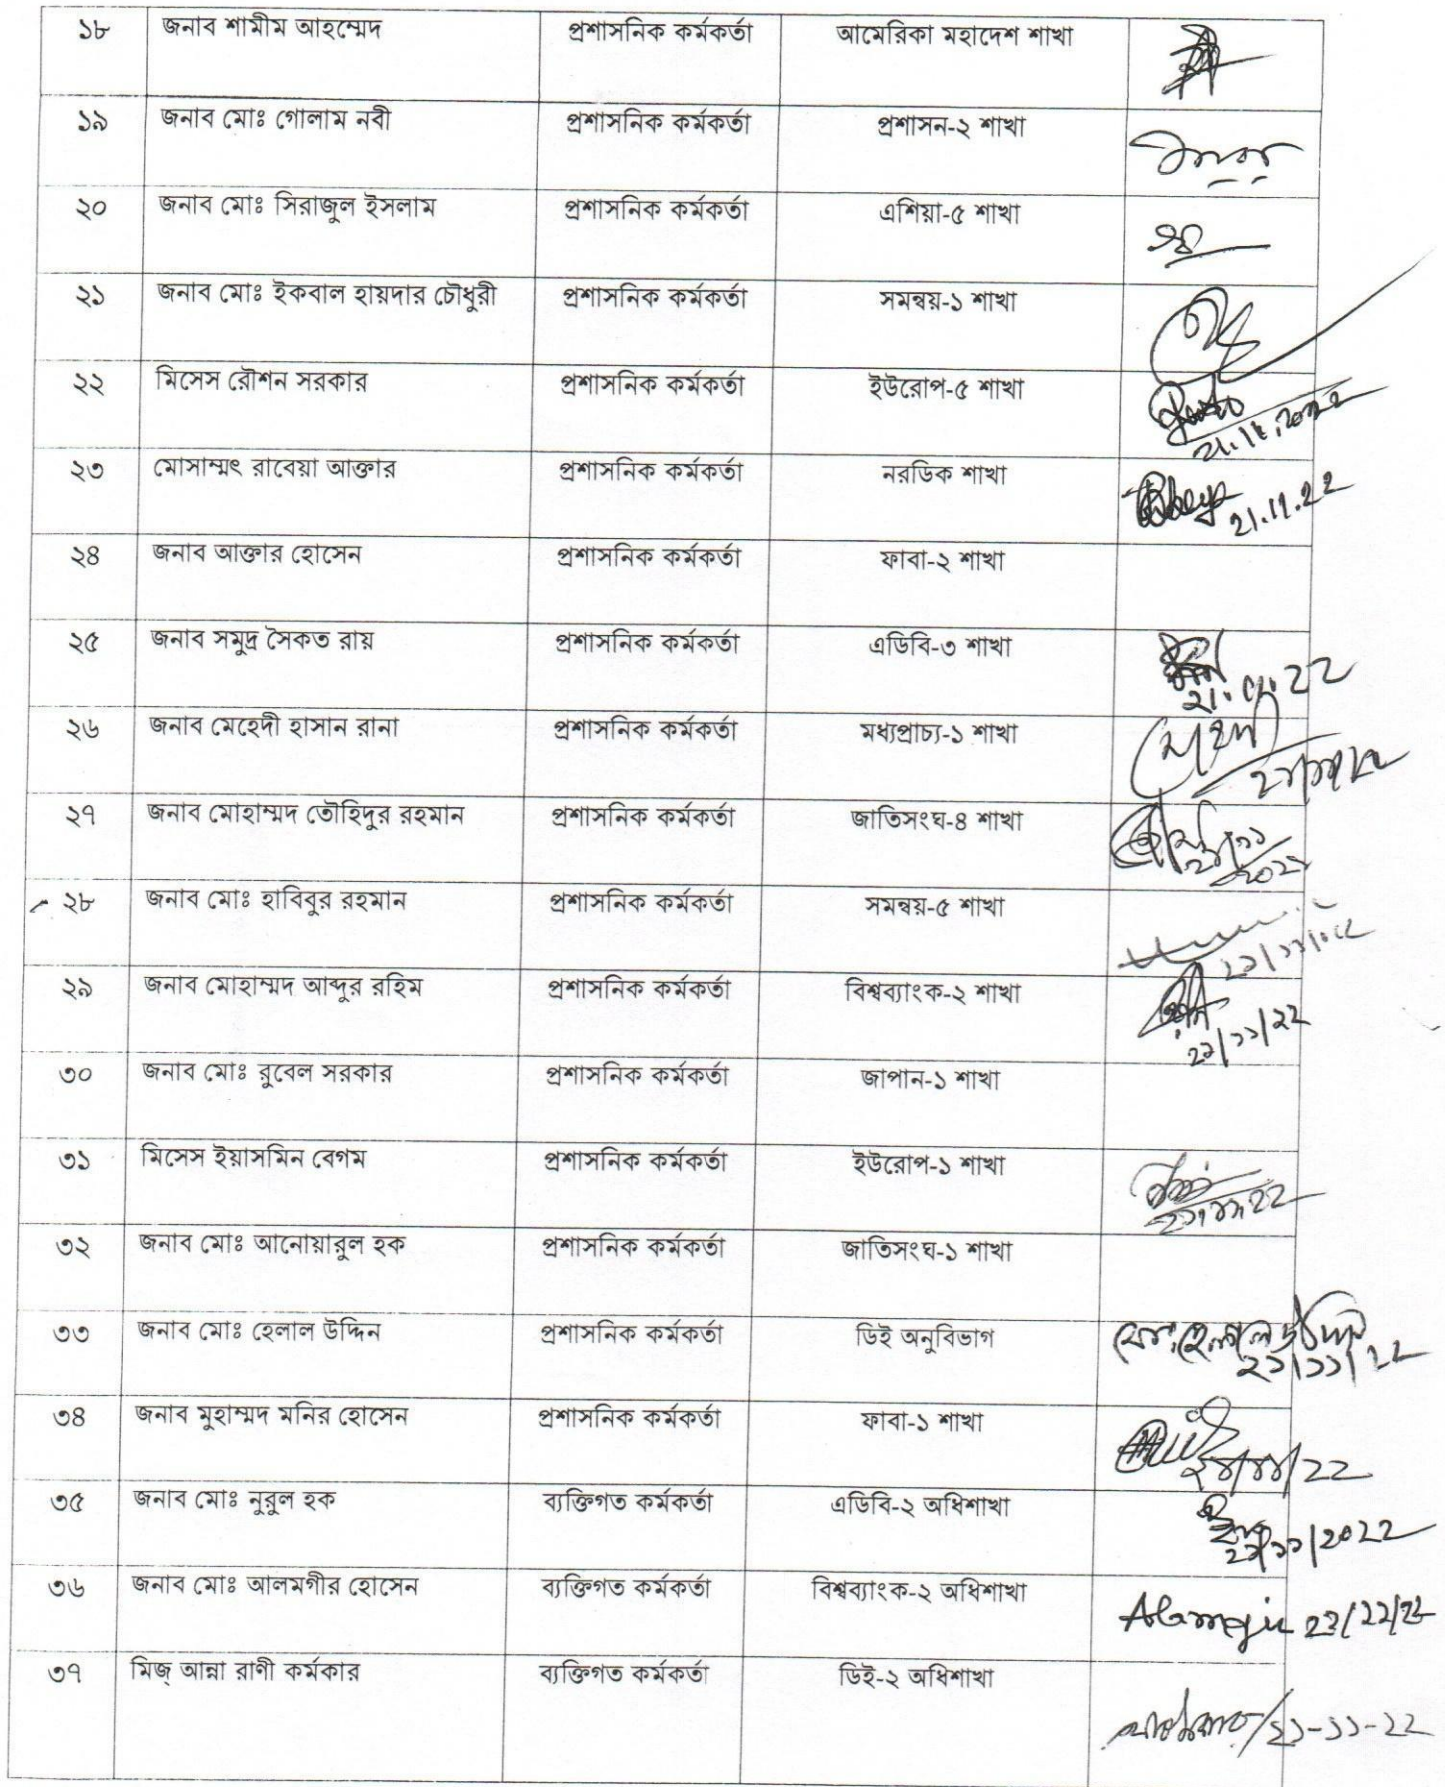 ১৮ জনাব শামীম আহম্মেদ প্রশাসনিক কর্মকর্তা আমেরিকা মহাদেশ শাখা
১৯ জনাব মোঃ গোলাম নবী প্রশাসনিক কর্মকর্তা প্রশাসন-২ শাখা
২০ জনাব মোঃ সিরাজুল ইসলাম প্রশাসনিক কর্মকর্তা এশিয়া-৫ শাখা
২১ জনাব মোঃ ইকবাল হায়দার চৌধুরী প্রশাসনিক কর্মকর্তা সমন্বয়-১ শাখা
২২ মিসেস রৌশন সরকার প্রশাসনিক কর্মকর্তা ইউরোপ-৫ শাখা
২৩ মোসাম্মৎ রাবেয়া আক্তার প্রশাসনিক কর্মকর্তা নরডিক শাখা 21.11.22
২৪ জনাব আক্তার হোসেন প্রশাসনিক কর্মকর্তা ফাবা-২ শাখা
২৫ জনাব সমুদ্র সৈকত রায় প্রশাসনিক কর্মকর্তা এডিবি-৩ শাখা
২৬ জনাব মেহেদী হাসান রানা প্রশাসনিক কর্মকর্তা মধ্যপ্রাচ্য-১ শাখা
২৭ জনাব মোহাম্মদ তৌহিদুর রহমান প্রশাসনিক কর্মকর্তা জাতিসংঘ-৪ শাখা
২৮ জনাব মোঃ হাবিবুর রহমান প্রশাসনিক কর্মকর্তা সমন্বয়-৫ শাখা
২৯ জনাব মোহাম্মদ আব্দুর রহিম প্রশাসনিক কর্মকর্তা বিশ্বব্যাংক-২ শাখা
৩০ জনাব মোঃ রুবেল সরকার প্রশাসনিক কর্মকর্তা জাপান-১ শাখা
৩১ মিসেস ইয়াসমিন বেগম প্রশাসনিক কর্মকর্তা ইউরোপ-১ শাখা
৩২ জনাব মোঃ আনোয়ারুল হক প্রশাসনিক কর্মকর্তা জাতিসংঘ-১ শাখা
৩৩ জনাব মোঃ হেলাল উদ্দিন প্রশাসনিক কর্মকর্তা ডিই অনুবিভাগ মোঃ হেলাল উদ্দিন
২১/১১/২২
৩৪ জনাব মুহাম্মদ মনির হোসেন প্রশাসনিক কর্মকর্তা ফাবা-১ শাখা
৩৫ জনাব মোঃ নুরুল হক ব্যক্তিগত কর্মকর্তা এডিবি-২ অধিশাখা
৩৬ জনাব মোঃ আলমগীর হোসেন ব্যক্তিগত কর্মকর্তা বিশ্বব্যাংক-২ অধিশাখা
৩৭ মিজ্ আন্না রাণী কর্মকার ব্যক্তিগত কর্মকর্তা ডিই-২ অধিশাখা ২১-১১-২২